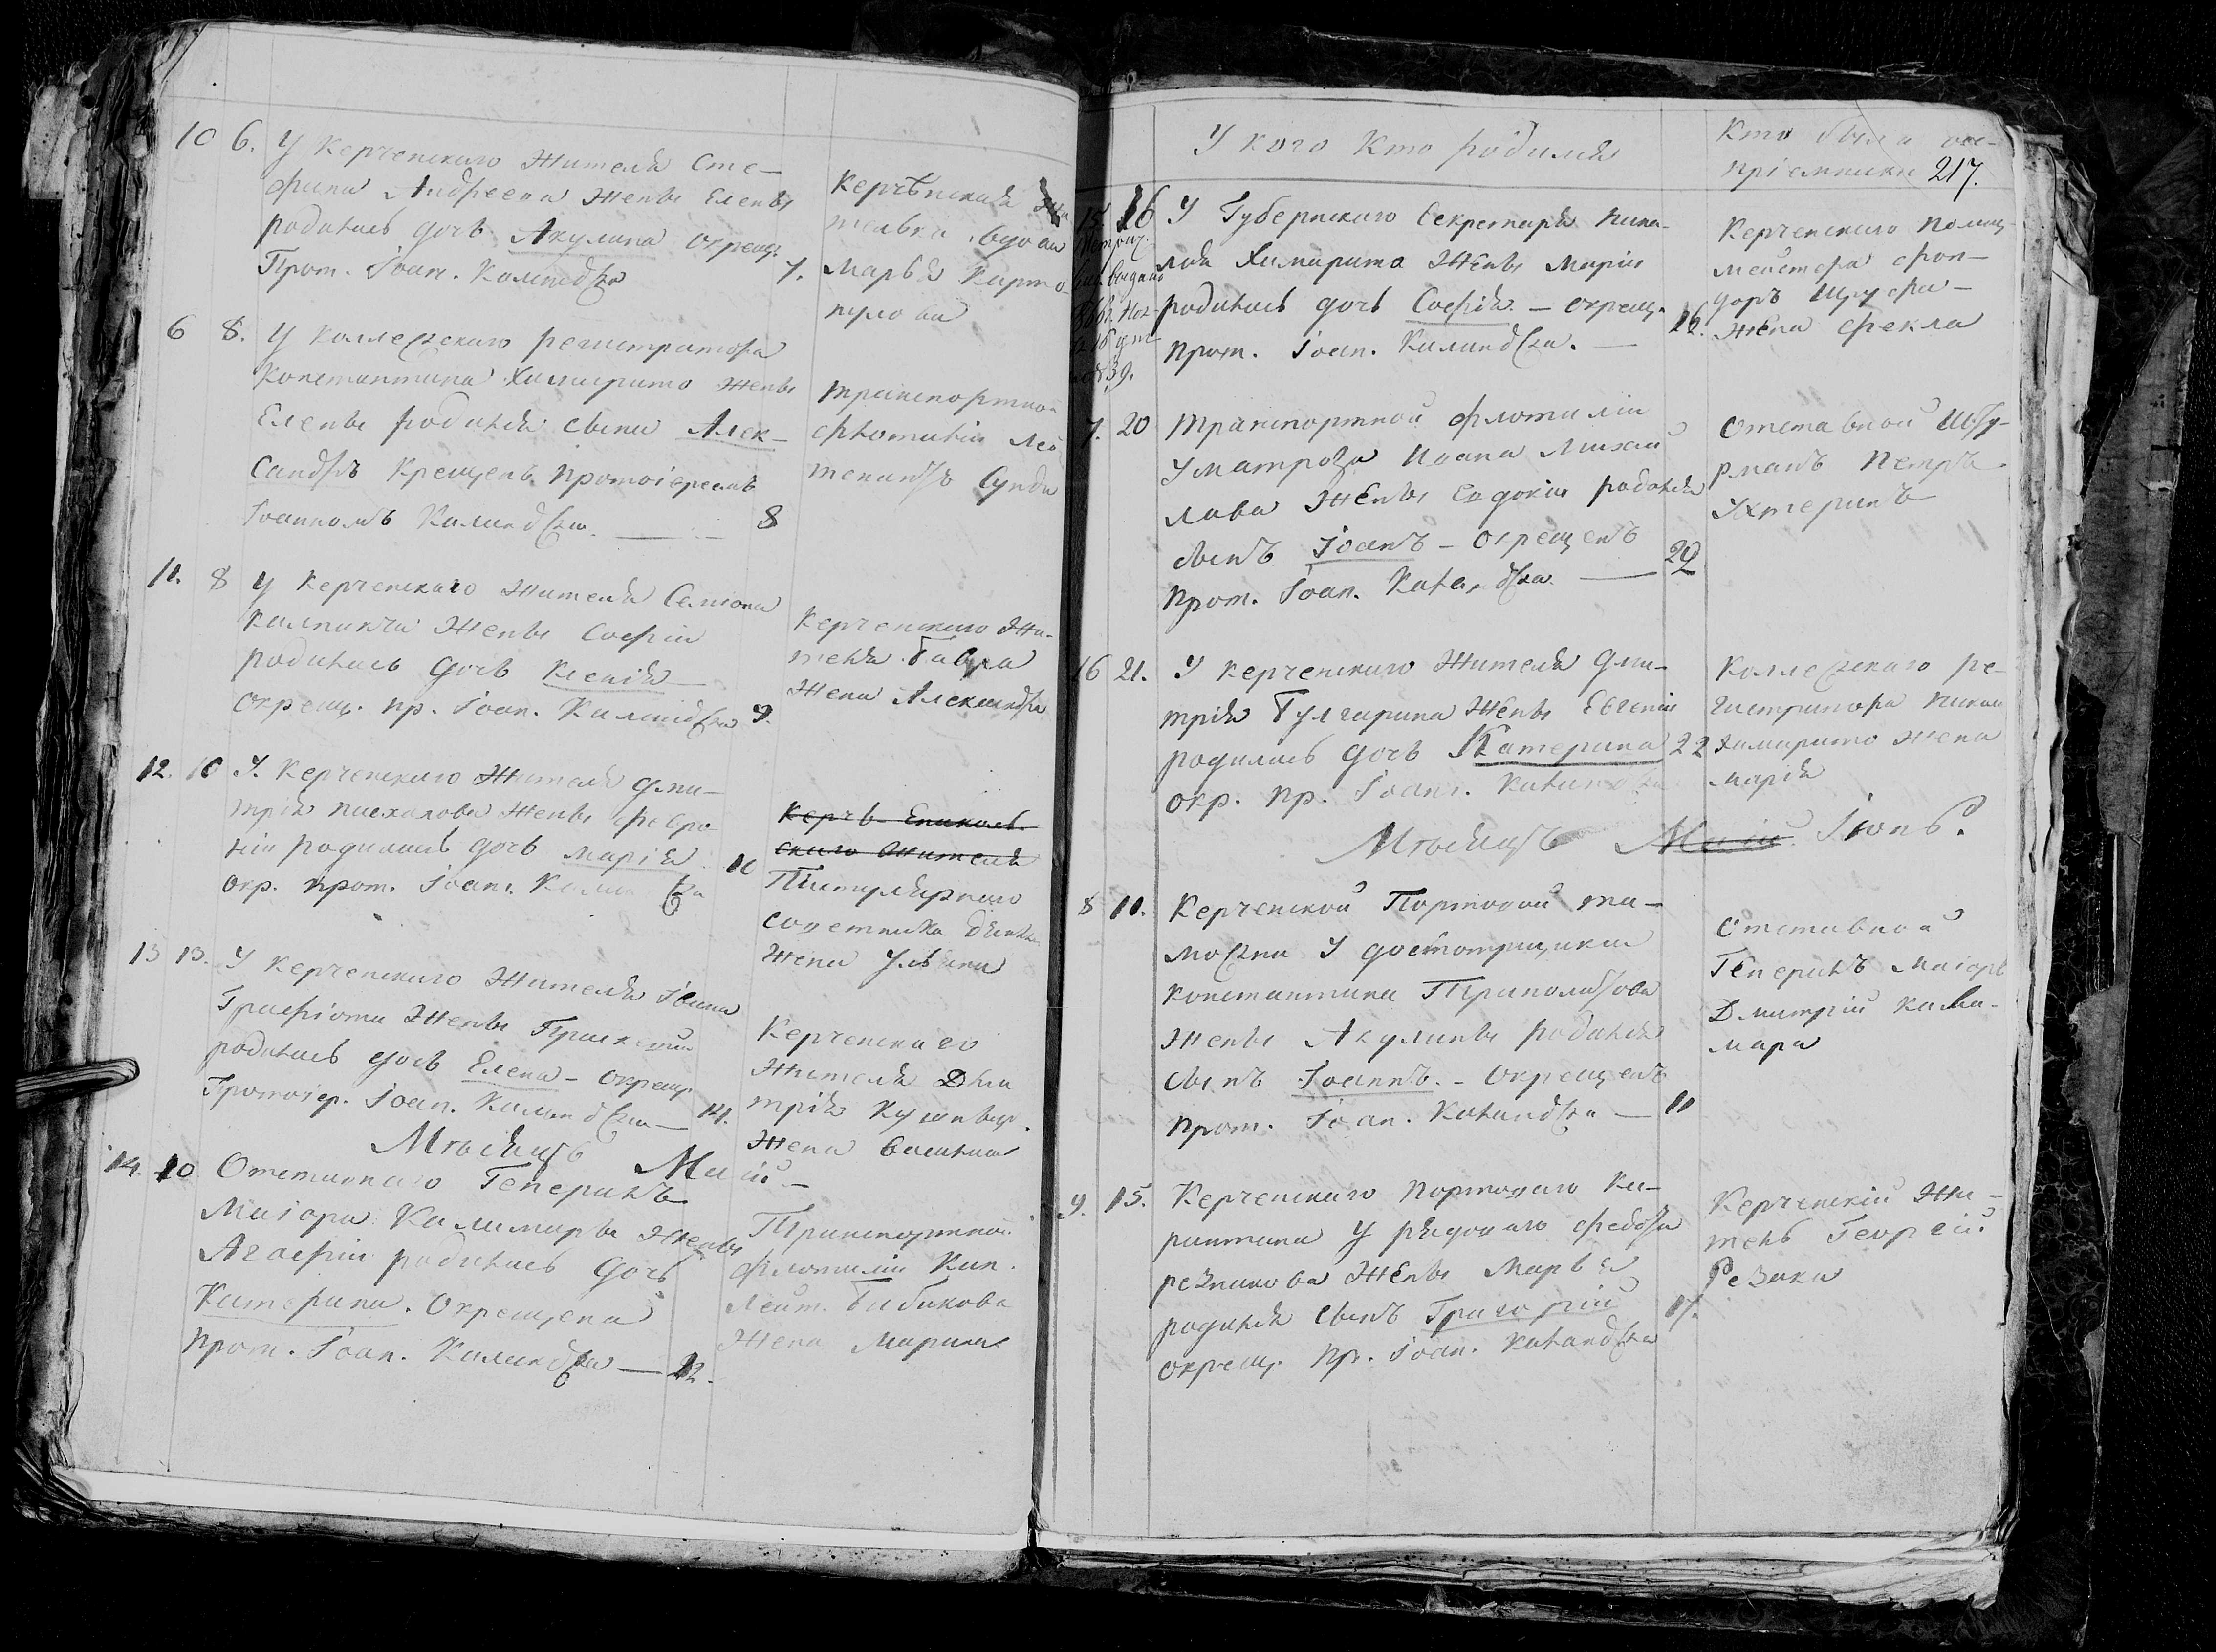 10 6. У Керченскаго Жителя Сте-
фана Андреева Жены Елены
родилась дочь Акулина окрещ.
Прот. Іоан. Коландра 7.
Керченская жи
телька вдова
Марья Карто-
пулова
6 8. У Коллежскаго регистратора
Константина Химарито жены
Елены родился сынъ Алек-
сандръ Крещенъ Протоіереемъ
Іоанномъ Каландра. 8
транспортной
флотиліи Лей
тенантъ
11. 8 У Керченскаго Жителя Семіона
Жены Софіи
родилась дочь Ксенія
окрещ. пр. Іоан. Каландра 9.
Керченскаго Жи-
теля Павла
Жена Александра
12. 10 У Керченскаго Жителя Дми-
трія Пасхалова Жены Февро-
ніи родилась дочь Марія
окр. прот. Іоан. 10
Керчь-Еникольс-
скаго Жителя
Титулярнаго
советника
Жена Ульяна
13 13. У Керченскаго Жителя
Жены
родилась дочь Елена - окрещ.
Протоіер. Іоан. Каландра - 14.
Керченскаго
Жителя Дми
трія
Жена
Мѣсяцъ Маій -
14. 10 Отставнаго Генералъ
Маіора Жены
Агафіи родилась дочь
Катерина. Окрещена
прот. Іоан. Каландра — 12.
Транспортной
флотиліи Кап.
Лейт. Бибикова
Жена Марина
У кого Кто родился
Кто были вос-
пріемники 217.
15. 16 У Губернскаго Секретаря Нико-
лая Химарито Жены Маріи
родилась дочь Софія. - окрещ.
прот. Іоан. Каландра. — 16.
Керченскаго Полиц-
мейстера фон-
доръ
Жена Фекла
7. 20 Транспортной флотиліи
У матроза Ивана Михай
лова Жены Евдокіи родился
сынъ Іоанъ - окрещенъ
прот. Іоан. Каландра. — 29
Отставной Шту-
рманъ Петръ
16 21. У Керченскаго Жителя Дми-
трія Булгарина Жены Евгеніи
родилась дочь Катерина 22
окр. пр. Іоан. Каландра
Коллежскаго ре-
гистратора Никол
Химарито жена
Марія
Мѣсяцъ Маій Іюнь.
8 11. Керченской Портовой та-
можни У досмотрщика
Константина
Жены Акулины родился
сынъ Іоаннъ. - Окрещенъ
прот. Іоан. Каландра — 11
Отставной
Генералъ Маіоръ
Дмитрій
9. 15. Керченскаго Портоваго Ка-
рантина У рядоваго Федора
резникова Жены Марьи
родился сынъ Григорій 17.
окрещ. пр. Іоан. Каландра
Керченскій Жи-
тель Георгій